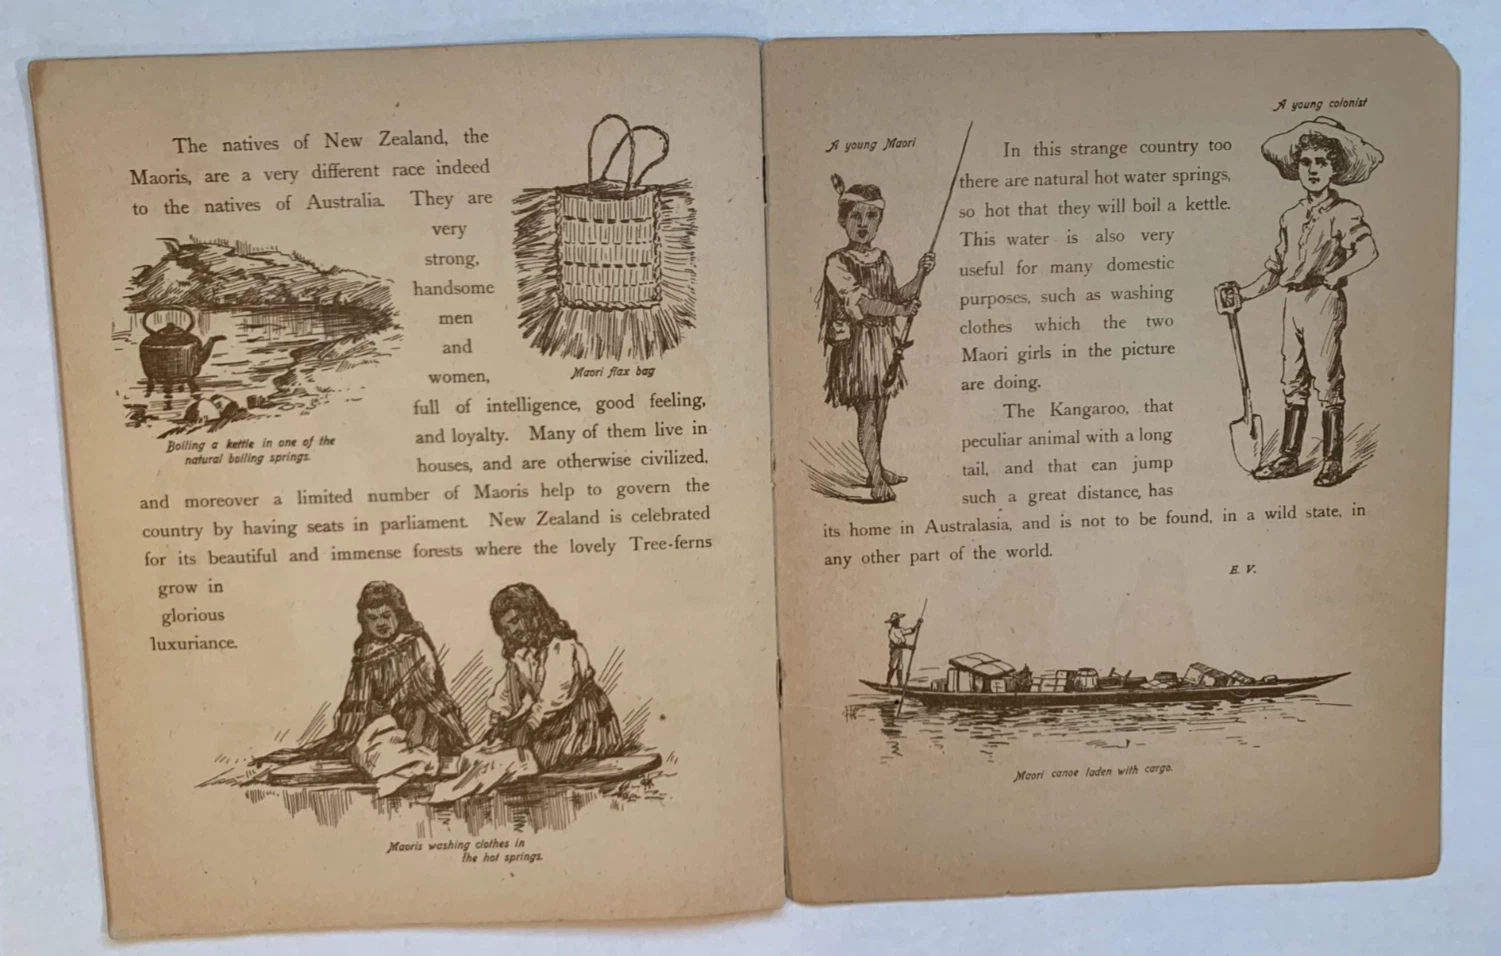 The natives of New Zealand, the
Maoris, are a very different race indeed
to the natives of Australia. They are
very
strong,
handsome
men
and
women,
Maori flax bag
full of intelligence, good feeling,
and loyalty. Many of them live in
houses, and are otherwise civilized,
Boiling a kettle in one of the
natural boiling springs.
and moreover a limited number of Maoris help to govern the
country by having seats in parliament. New Zealand is celebrated
for its beautiful and immense forests where the lovely Tree-ferns
grow in
glorious
luxuriance.
Maoris washing clothes in
the hot springs.
A young Maori
A young colonist
In this strange country too
there are natural hot water springs,
so hot that they will boil a kettle.
This water is also very
useful for many domestic
purposes, such as washing
clothes which the two
Maori girls in the picture
are doing.
The Kangaroo, that
peculiar animal with a long
tail, and that can jump
such a great distance, has
its home in Australasia, and is not to be found, in a wild state, in
any other part of the world.
E. V.
Maori canoe laden with cargo.